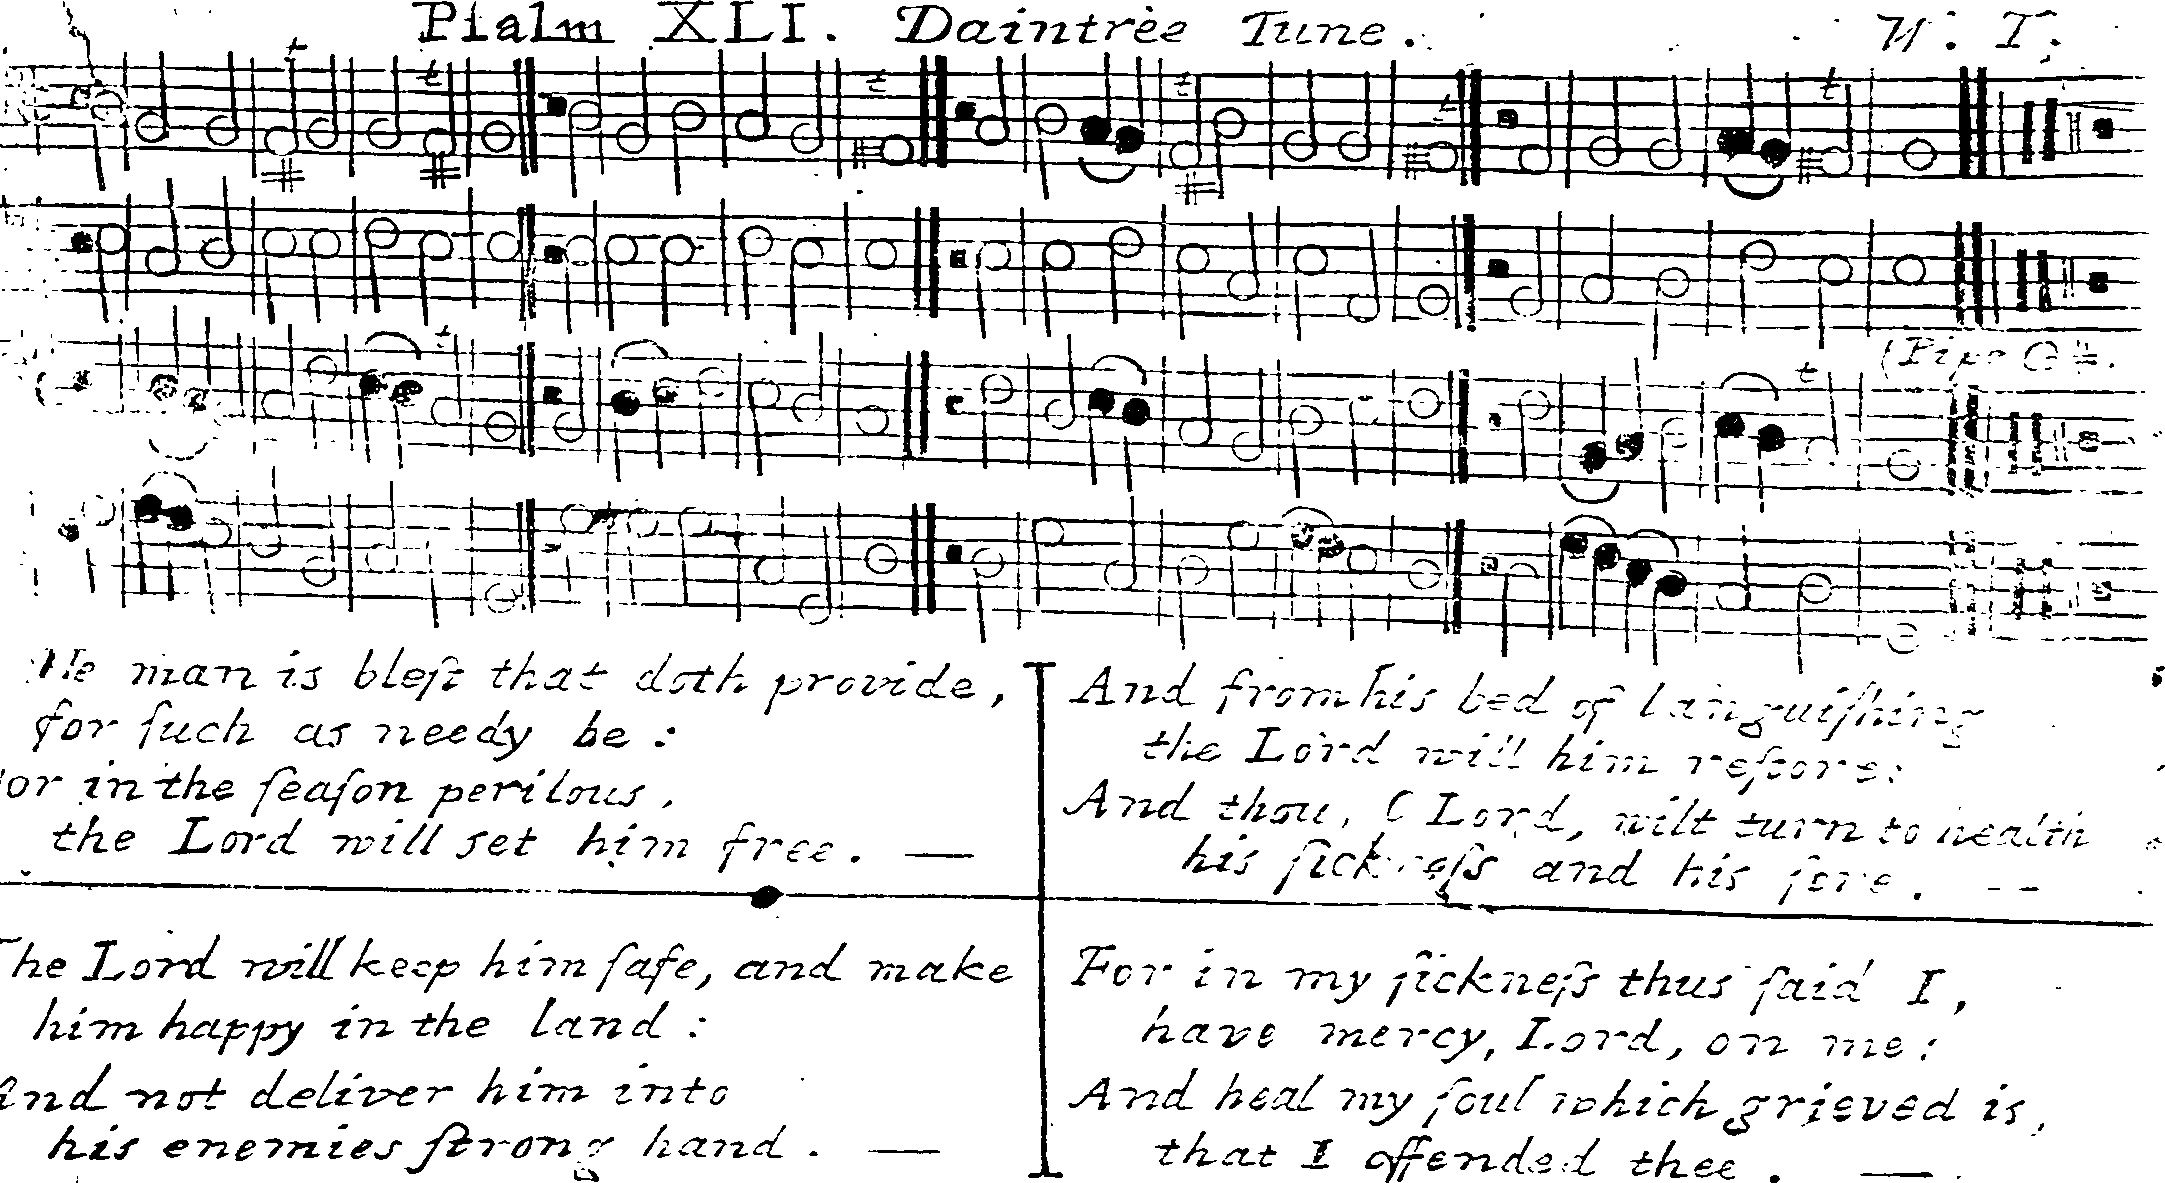 Pſalm XLI. Daintrèe Tune. W. T.
t t t t t t
t
(Pipe G #.
t
He man is bleſt that doth provide,
for ſuch as needy be :
For in the ſeaſon perilous,
the Lord will set him free. —
And from his bed of languiſhing
the Lord will him reſtore:
And thou, O Lord, wilt turn to health
his ſickneſs and his ſore. —
The Lord will keep him ſafe, and make
him happy in the land :
And not deliver him into
his enemies ſtrong hand. —
For in my ſickneſs thus ſaid I,
have mercy, Lord, on me :
And heal my ſoul which grieved is,
that I offended thee. —